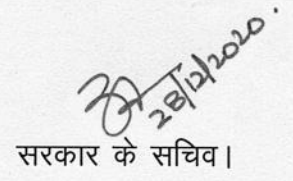 28/12/2020.
सरकार के सचिव।